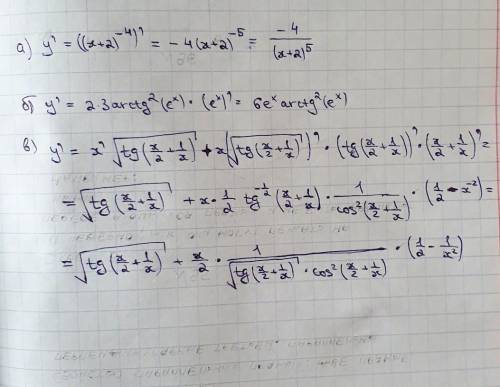 а) y' = ((x+2)^-4)' = -4(x+2)^-5 = -4/(x+2)^5
б) y' = 2·3arctg²(e^x)·(e^x)' = 6e^x arctg²(e^x)
в) y' = x' √(tg(x/2+1/x)) + x(√(tg(x/2+1/x)))' · (tg(x/2+1/x))' · (x/2+1/x)' =
= √(tg(x/2+1/x)) + x·1/2 tg^(-1/2)(x/2+1/x) · 1/cos²(x/2+1/x) · (1/2 - x^-2) =
= √(tg(x/2+1/x)) + x/2 · 1/(√(tg(x/2+1/x)) · cos²(x/2+1/x)) · (1/2 - 1/x²)